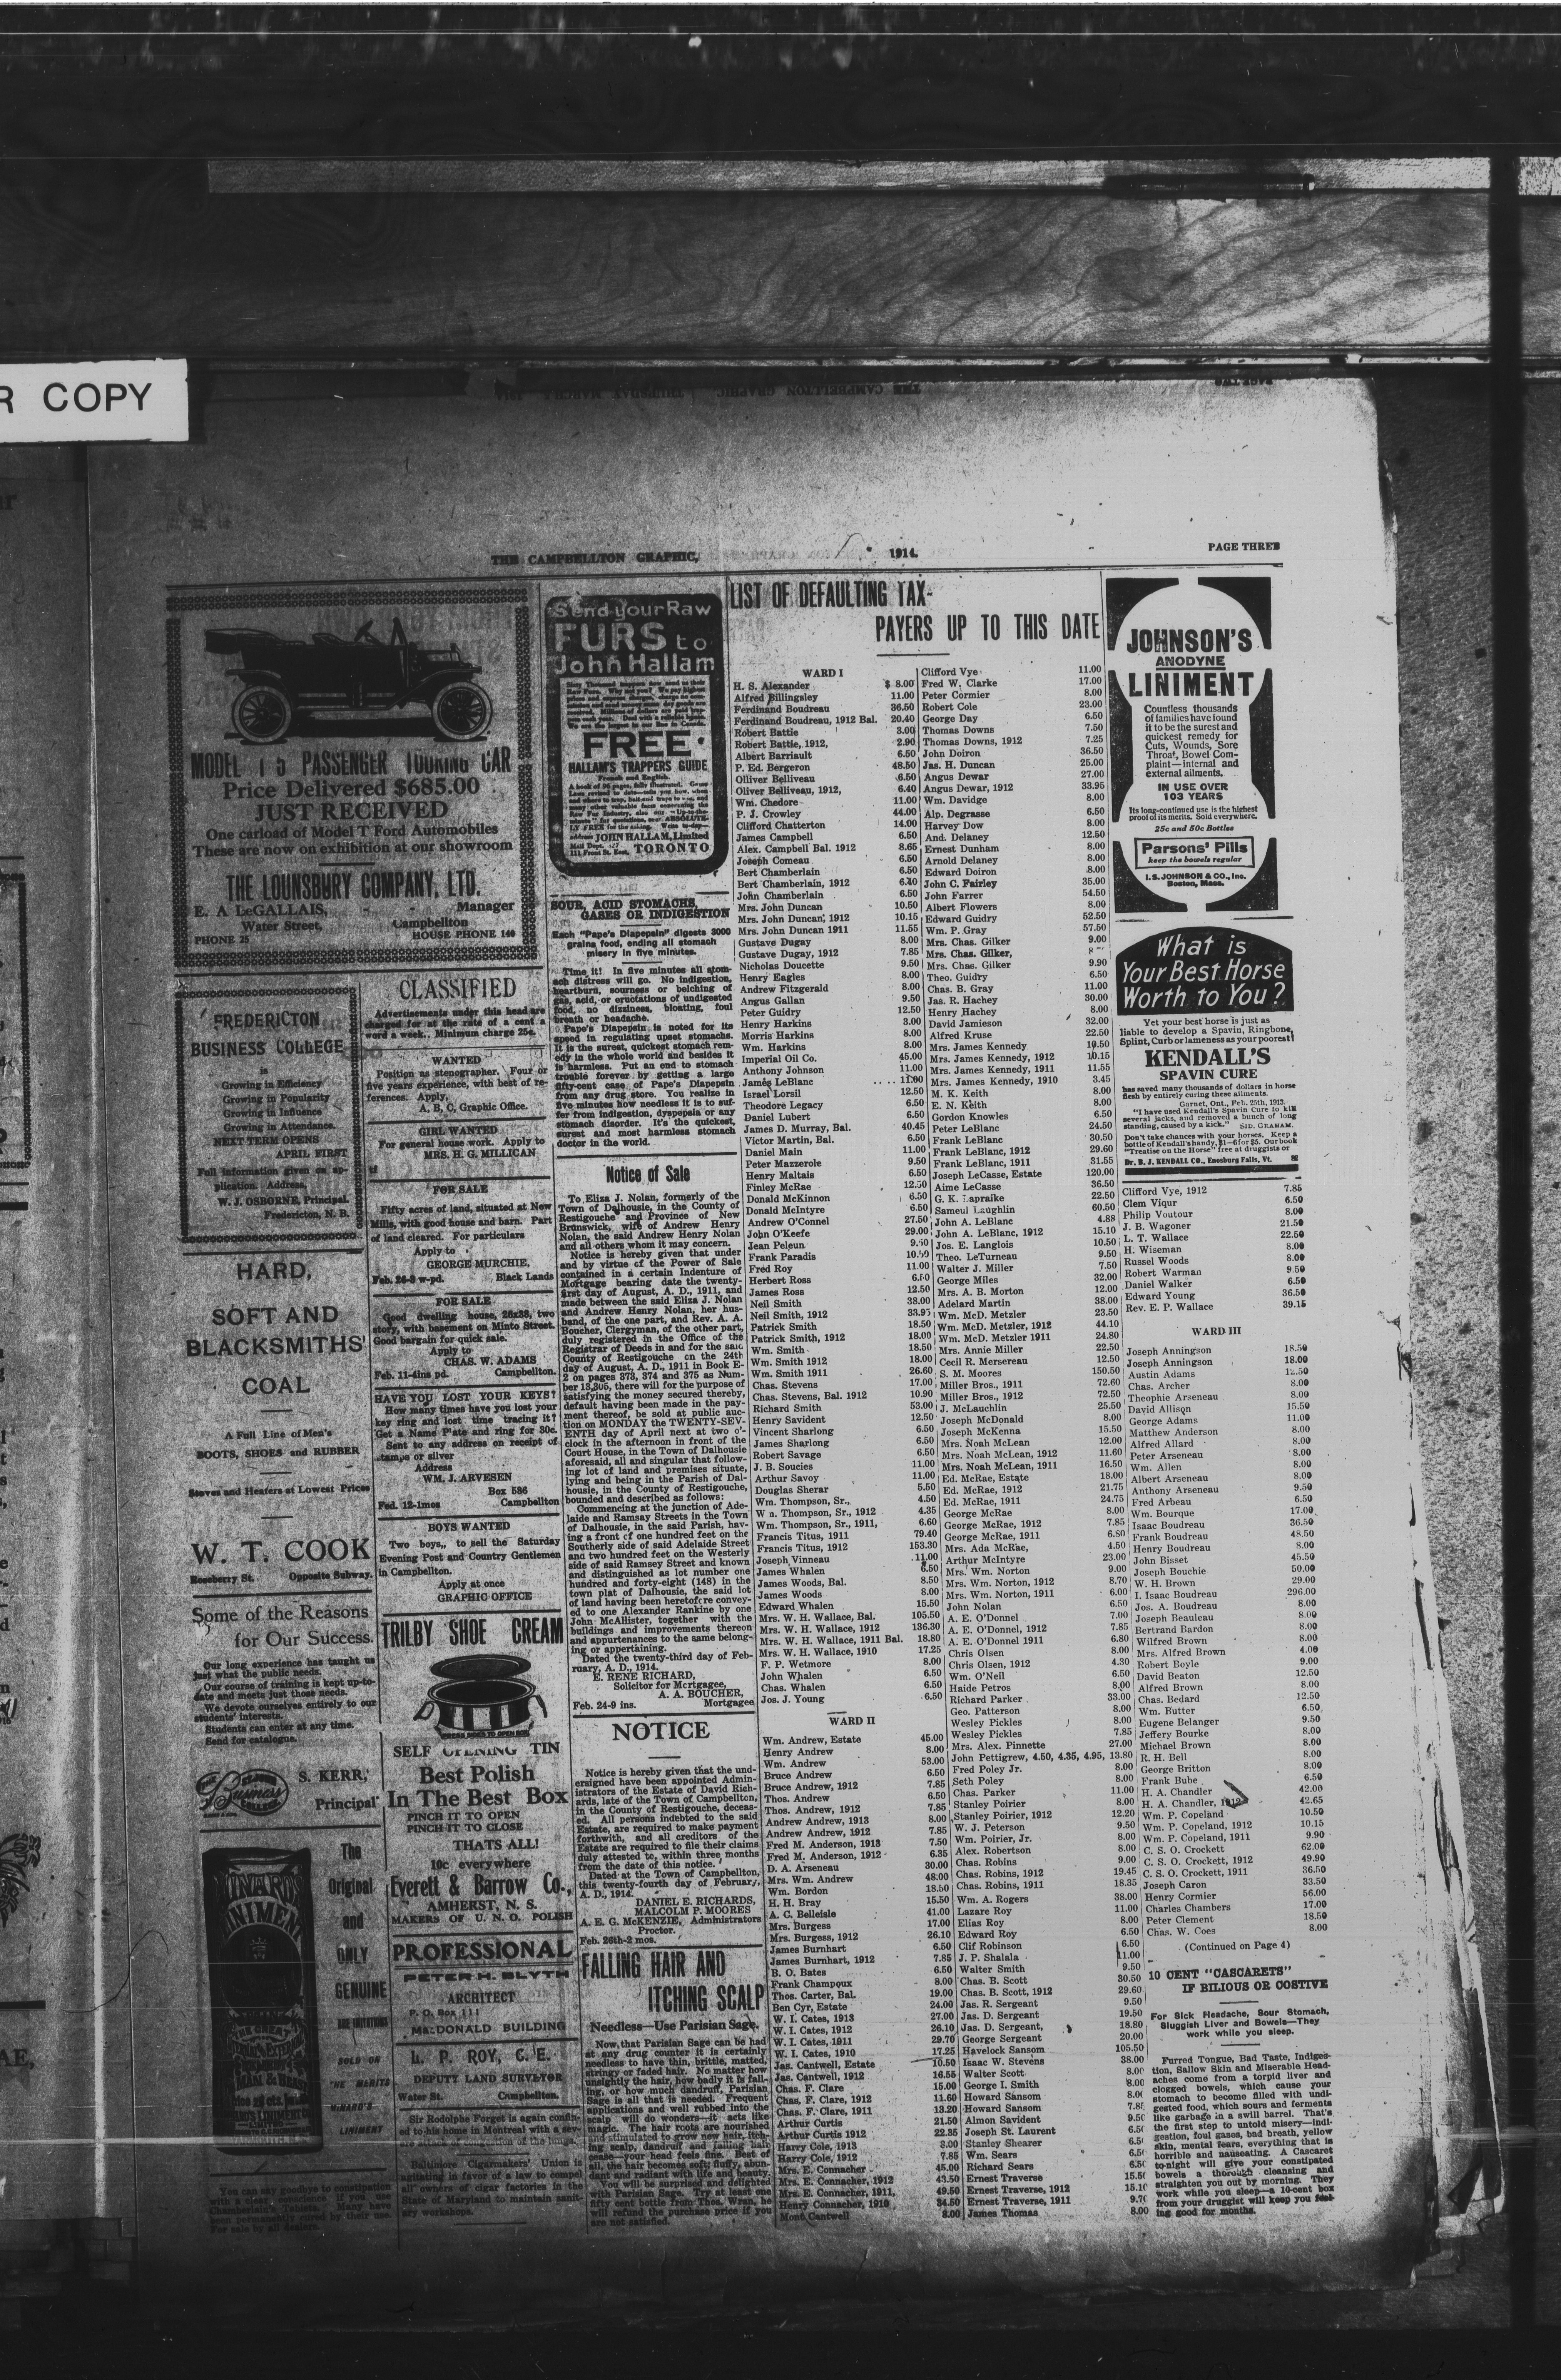 R COPY
THE CAMPBELLTON GRAPHIC, 1914. PAGE THREE
MODEL T 5 PASSENGER TOURING CAR
Price Delivered $685.00
JUST RECEIVED
One carload of Model T Ford Automobiles
These are now on exhibition at our showroom
THE LOUNSBURY COMPANY, LTD.
E. A. LeGALLAIS, - - Manager
Water Street, Campbellton
PHONE 25 HOUSE PHONE 140
FREDERICTON
BUSINESS COLLEGE
is
Growing in Efficiency
Growing in Popularity
Growing in Influence
Growing in Attendance.
NEXT TERM OPENS
APRIL FIRST
Full information given on ap-
plication. Address,
W. J. OSBORNE, Principal.
Fredericton, N. B.
HARD,
SOFT AND
BLACKSMITHS'
COAL
A Full Line of Men's
BOOTS, SHOES and RUBBER
Stoves and Heaters at Lowest Prices
W. T. COOK
Roseberry St. Opposite Subway.
Some of the Reasons
for Our Success.
Our long experience has taught us
just what the public needs.
Our course of training is kept up-to-
date and meets just those needs.
We devote ourselves entirely to our
students' interests.
Students can enter at any time.
Send for catalogue.
S. KERR,
Principal
The
Original
and
ONLY
GENUINE
SOLD ON
THE MERITS
MINARD'S
LINIMENT
You can say goodbye to constipation
For sale by all dealers.
CLASSIFIED
Advertisements under this head are
charged for at the rate of a cent a
word a week.. Minimum charge 25c.
WANTED
Position as stenographer. Four or
five years experience, with best of re-
ferences. Apply,
A, B, C, Graphic Office.
GIRL WANTED
For general house work. Apply to
MRS. H. G. MILLICAN
tf
FOR SALE
Fifty acres of land, situated at New
Mills, with good house and barn. Part
of land cleared. For particulars
Apply to
GEORGE MURCHIE,
Feb. 26-3 w-pd. Black Lands
FOR SALE
Good dwelling house, 26x38, two
story, with basement on Minto Street.
Good bargain for quick sale.
Apply to
CHAS. W. ADAMS
Feb. 11-4ins pd. Campbellton.
HAVE YOU LOST YOUR KEYS?
How many times have you lost your
key ring and lost time tracing it?
Get a Name Plate and ring for 30c.
Sent to any address on receipt of
stamps or silver
Address
WM. J. ARVESEN
Box 586
Fed. 12-1mos Campbellton
BOYS WANTED
Two boys,, to sell the Saturday
Evening Post and Country Gentlemen
in Campbellton.
Apply at once
GRAPHIC OFFICE
TRILBY SHOE CREAM
SELF OPENING TIN
Best Polish
In The Best Box
PINCH IT TO OPEN
PINCH IT TO CLOSE
THATS ALL!
10c everywhere
Everett & Barrow Co.,
AMHERST, N. S.
MAKERS OF U. N. O. POLISH
PROFESSIONAL
PETER H. BLYTH
ARCHITECT
P. O. Box 111
MacDONALD BUILDING
L. P. ROY, C. E.
DEPUTY LAND SURVEYOR
Water St. Campbellton.
Sir Rodolphe Forget is again confin-
ed to his home in Montreal with a sev-
ere attack of congestion of the lungs.
Baltimore Cigarmakers' Union is
agitating in favor of a law to compel
all owners of cigar factories in the
State of Maryland to maintain sanit-
ary workshops.
Send your Raw
FURS to
John Hallam
FREE
HALLAM'S TRAPPERS GUIDE
French and English.
JOHN HALLAM, Limited
111 Front St. East, TORONTO
SOUR, ACID STOMACHS,
GASES OR INDIGESTION
Each "Pape's Diapepsin" digests 3000
grains food, ending all stomach
misery in five minutes.
Time it! In five minutes all stom-
ach distress will go. No indigestion,
heartburn, sourness or belching of
gas, acid, or eructations of undigested
food, no dizziness, bloating, foul
breath or headache.
Pape's Diapepsin is noted for its
speed in regulating upset stomachs.
It is the surest, quickest stomach rem-
edy in the whole world and besides it
is harmless. Put an end to stomach
trouble forever by getting a large
fifty-cent case of Pape's Diapepsin
from any drug store. You realize in
five minutes how needless it is to suf-
fer from indigestion, dyspepsia or any
stomach disorder. It's the quickest,
surest and most harmless stomach
doctor in the world.
Notice of Sale
To Eliza J. Nolan, formerly of the
Town of Dalhousie, in the County of
Restigouche and Province of New
Brunswick, wife of Andrew Henry
Nolan, the said Andrew Henry Nolan
and all others whom it may concern.
Notice is hereby given that under
and by virtue of the Power of Sale
contained in a certain Indenture of
Mortgage bearing date the twenty-
first day of August, A. D., 1911, and
made between the said Eliza J. Nolan
and Andrew Henry Nolan, her hus-
band, of the one part, and Rev. A. A.
Boucher, Clergyman, of the other part,
duly registered in the Office of the
Registrar of Deeds in and for the said
County of Restigouche on the 24th
day of August, A. D., 1911 in Book E-
2 on pages 373, 374 and 375 as Num-
ber 13,305, there will for the purpose of
satisfying the money secured thereby,
default having been made in the pay-
ment thereof, be sold at public auc-
tion on MONDAY the TWENTY-SEV-
ENTH day of April next at two o'-
clock in the afternoon in front of the
Court House, in the Town of Dalhousie
aforesaid, all and singular that follow-
ing lot of land and premises situate,
lying and being in the Parish of Dal-
housie, in the County of Restigouche,
bounded and described as follows:
Commencing at the junction of Ade-
laide and Ramsay Streets in the Town
of Dalhousie, in the said Parish, hav-
ing a front of one hundred feet on the
Southerly side of said Adelaide Street
and two hundred feet on the Westerly
side of said Ramsey Street and known
and distinguished as lot number one
hundred and forty-eight (148) in the
town plat of Dalhousie, the said lot
of land having been heretofore convey-
ed to one Alexander Rankine by one
John McAllister, together with the
buildings and improvements thereon
and appurtenances to the same belong-
ing or appertaining.
Dated the twenty-third day of Feb-
ruary, A. D., 1914.
E. RENE RICHARD,
Solicitor for Mortgagee,
A. A. BOUCHER,
Feb. 24-9 ins. Mortgagee
NOTICE
Notice is hereby given that the und-
ersigned have been appointed Admin-
istrators of the Estate of David Rich-
ards, late of the Town of Campbellton,
in the County of Restigouche, deceas-
ed. All persons indebted to the said
Estate, are required to make payment
forthwith, and all creditors of the
Estate are required to file their claims
duly attested to, within three months
from the date of this notice.
Dated at the Town of Campbellton,
this twenty-fourth day of February,
A. D., 1914.
DANIEL E. RICHARDS,
MALCOLM P. MOORES
A. E. G. McKENZIE, Administrators
Proctor.
Feb. 26th-2 mos.
FALLING HAIR AND
ITCHING SCALP
Needless—Use Parisian Sage.
Now, that Parisian Sage can be had
at any drug counter it is certainly
needless to have thin, brittle, matted,
stringy or faded hair. No matter how
unsightly the hair, how badly it is fall-
ing, or how much dandruff, Parisian
Sage is all that is needed. Frequent
applications and well rubbed into the
scalp will do wonders—it acts like
magic. The hair roots are nourished
and stimulated to grow new hair, itch-
ing scalp, dandruff and falling hair
cease—your head feels fine. Best of
all, the hair becomes soft, fluffy, abun-
dant and radiant with life and beauty.
You will be surprised and delighted
with Parisian Sage. Try at least one
fifty cent bottle from Thos. Wran, he
will refund the purchase price if you
are not satisfied.
LIST OF DEFAULTING TAX-
PAYERS UP TO THIS DATE
WARD I
H. S. Alexander $ 8.00
Alfred Billingsley 11.00
Ferdinand Boudreau 36.50
Ferdinand Boudreau, 1912 Bal. 20.40
Robert Battie 3.00
Robert Battie, 1912, 2.90
Albert Barriault 6.50
P. Ed. Bergeron 48.50
Olliver Belliveau 6.50
Oliver Belliveau, 1912, 6.40
Wm. Chedore 11.00
P. J. Crowley 44.00
Clifford Chatterton 14.00
James Campbell 6.50
Alex. Campbell Bal. 1912 8.65
Joseph Comeau 6.50
Bert Chamberlain 6.50
Bert Chamberlain, 1912 6.40
John Chamberlain 6.50
Mrs. John Duncan 10.50
Mrs. John Duncan, 1912 10.15
Mrs. John Duncan 1911 11.55
Gustave Dugay 8.00
Gustave Dugay, 1912 7.85
Nicholas Doucette 9.50
Henry Eagles 8.00
Andrew Fitzgerald 8.00
Angus Gallan 9.50
Peter Guidry 12.50
Henry Harkins 8.00
Morris Harkins 8.00
Wm. Harkins 8.00
Imperial Oil Co. 45.00
Anthony Johnson 11.00
James LeBlanc .... 11.00
Israel Lorsil 12.50
Theodore Legacy 6.50
Daniel Lubert 6.50
James D. Murray, Bal. 40.45
Victor Martin, Bal. 6.50
Daniel Main 11.00
Peter Mazzerole 9.50
Henry Maltais 6.50
Finley McRae 12.50
Donald McKinnon 6.50
Donald McIntyre 6.50
Andrew O'Connel 27.50
John O'Keefe 29.00
Jean Peleun 9.50
Frank Paradis 10.50
Fred Roy 11.00
Herbert Ross 6.50
James Ross 12.50
Neil Smith 38.00
Neil Smith, 1912 33.95
Patrick Smith 18.50
Patrick Smith, 1912 18.00
Wm. Smith 18.50
Wm. Smith 1912 18.00
Wm. Smith 1911 26.60
Chas. Stevens 17.00
Chas. Stevens, Bal. 1912 10.90
Richard Smith 53.00
Henry Savident 12.50
Vincent Sharlong 6.50
James Sharlong 6.50
Robert Savage 6.50
J. B. Soucies 11.00
Arthur Savoy 11.00
Douglas Sherar 5.50
Wm. Thompson, Sr., 4.50
Wm. Thompson, Sr., 1912 4.35
Wm. Thompson, Sr., 1911, 6.60
Francis Titus, 1911 79.40
Francis Titus, 1912 153.30
Joseph Vinneau 11.00
James Whalen 6.50
James Woods, Bal. 8.50
James Woods 8.00
Edward Whalen 15.50
Mrs. W. H. Wallace, Bal. 105.50
Mrs. W. H. Wallace, 1912 136.30
Mrs. W. H. Wallace, 1911 Bal. 18.80
Mrs. W. H. Wallace, 1910 17.25
F. P. Wetmore 8.00
John Whalen 6.50
Chas. Whalen 6.50
Jos. J. Young 6.50
WARD II
Wm. Andrew, Estate 45.00
Henry Andrew 8.00
Wm. Andrew 53.00
Bruce Andrew 6.50
Bruce Andrew, 1912 7.85
Thos. Andrew 6.50
Thos. Andrew, 1912 7.85
Andrew Andrew, 1913 8.00
Andrew Andrew, 1912 7.85
Fred M. Anderson, 1913 7.50
Fred M. Anderson, 1912 6.35
D. A. Arseneau 30.00
Mrs. Wm. Andrew 48.00
Wm. Bordon 18.50
H. H. Bray 15.50
A. C. Belleisle 41.00
Mrs. Burgess 17.00
Mrs. Burgess, 1912 26.10
James Burnhart 6.50
James Burnhart, 1912 7.85
B. O. Bates 6.50
Frank Champoux 8.00
Thos. Carter, Bal. 19.00
Ben Cyr, Estate 24.00
W. I. Cates, 1913 27.00
W. I. Cates, 1912 26.10
W. I. Cates, 1911 29.70
W. I. Cates, 1910 17.25
Jas. Cantwell, Estate 10.50
Jas. Cantwell, 1912 16.55
Chas. F. Clare 15.00
Chas. F. Clare, 1912 13.20
Chas. F. Clare, 1911 21.50
Arthur Curtis 22.35
Arthur Curtis 1912 26.10
Harry Cole, 1913 3.00
Harry Cole, 1912 7.85
Mrs. E. Connacher 45.00
Mrs. E. Connacher, 1912 43.50
Mrs. E. Connacher, 1911, 49.50
Henry Connacher, 1910 34.50
Mont. Cantwell 8.00
Clifford Vye 11.00
Fred W. Clarke 17.00
Peter Cormier 8.00
Robert Cole 23.00
George Day 6.50
Thomas Downs 7.50
Thomas Downs, 1912 7.25
John Doiron 36.50
Jas. H. Duncan 25.00
Angus Dewar 27.00
Angus Dewar, 1912 33.95
Wm. Davidge 8.00
Alp. Degrasse 6.50
Harvey Dow 8.00
And. Delaney 12.50
Ernest Dunham 8.00
Arnold Delaney 8.00
Edward Doiron 8.00
John C. Fairley 35.00
John Farrer 54.50
Albert Flowers 8.00
Edward Guidry 52.50
Wm. P. Gray 57.50
Mrs. Chas. Gilker 9.00
Mrs. Chas. Gilker,
Mrs. Chas. Gilker 9.90
Theo. Guidry 6.50
Chas. B. Gray 11.00
Jas. R. Hachey 30.00
Henry Hachey 8.00
David Jamieson 32.00
Alfred Kruse 22.50
Mrs. James Kennedy 10.50
Mrs. James Kennedy, 1912 10.15
Mrs. James Kennedy, 1911 11.55
Mrs. James Kennedy, 1910 3.45
M. K. Keith 8.00
E. N. Keith 8.00
Gordon Knowles 6.50
Peter LeBlanc 24.50
Frank LeBlanc 30.50
Frank LeBlanc, 1912 29.60
Frank LeBlanc, 1911 31.55
Joseph LeCasse, Estate 120.00
Aime LeCasse 36.50
G. K. Lapraike 22.50
Sameul Laughlin 60.50
John A. LeBlanc 4.88
John A. LeBlanc, 1912 15.10
Jos. E. Langlois 10.50
Theo. LeTurneau 9.50
Walter J. Miller 7.50
George Miles 32.00
Mrs. A. B. Morton 12.00
Adelard Martin 38.00
Wm. McD. Metzler 23.50
Wm. McD. Metzler, 1912 44.10
Wm. McD. Metzler 1911 24.80
Mrs. Annie Miller 22.50
Cecil R. Mersereau 12.50
S. M. Moores 150.50
Miller Bros., 1911 72.60
Miller Bros., 1912 72.50
J. McLauchlin 25.50
Joseph McDonald 8.00
Joseph McKenna 15.50
Mrs. Noah McLean 12.00
Mrs. Noah McLean, 1912 11.60
Mrs. Noah McLean, 1911 16.50
Ed. McRae, Estate 18.00
Ed. McRae, 1912 21.75
Ed. McRae, 1911 24.75
George McRae 8.00
George McRae, 1912 7.85
George McRae, 1911 6.80
Mrs. Ada McRae, 4.50
Arthur McIntyre 23.00
Mrs. Wm. Norton 9.00
Mrs. Wm. Norton, 1912 8.70
Mrs. Wm. Norton, 1911 6.00
John Nolan 6.50
A. E. O'Donnel 7.00
A. E. O'Donnel, 1912 7.85
A. E. O'Donnel 1911 6.80
Chris Olsen 8.00
Chris Olsen, 1912 4.30
Wm. O'Neil 6.50
Haide Petros 8.00
Richard Parker 33.00
Geo. Patterson 8.00
Wesley Pickles 8.00
Wesley Pickles 7.85
Mrs. Alex. Pinnette 27.00
John Pettigrew, 4.50, 4.35, 4.95, 13.80
Fred Poley Jr. 8.00
Seth Poley 8.00
Chas. Parker 11.00
Stanley Poirier 8.00
Stanley Poirier, 1912 12.20
W. J. Peterson 9.50
Wm. Poirier, Jr. 8.00
Alex. Robertson 8.00
Chas. Robins 9.00
Chas. Robins, 1912 19.45
Chas. Robins, 1911 18.35
Wm. A. Rogers 38.00
Lazare Roy 11.00
Elias Roy 8.00
Edward Roy 6.50
Clif Robinson 6.50
J. P. Shalala 11.00
Walter Smith 9.50
Chas. B. Scott 30.50
Chas. B. Scott, 1912 29.60
Jas. R. Sergeant 9.50
Jas. D. Sergeant 19.50
Jas. D. Sergeant, 18.80
George Sergeant 20.00
Havelock Sansom 105.50
Isaac W. Stevens 38.00
Walter Scott 8.00
George I. Smith 8.00
Howard Sansom 8.00
Howard Sansom 7.85
Almon Savident 9.50
Joseph St. Laurent 6.50
Stanley Shearer 6.50
Wm. Sears 6.50
Richard Sears 6.50
Ernest Traverse 15.50
Ernest Traverse, 1912 15.10
Ernest Traverse, 1911 9.70
James Thomas 8.00
JOHNSON'S
ANODYNE
LINIMENT
Countless thousands
of families have found
it to be the surest and
quickest remedy for
Cuts, Wounds, Sore
Throat, Bowel Com-
plaint—internal and
external ailments.
IN USE OVER
103 YEARS
Its long-continued use is the highest
proof of its merits. Sold everywhere.
25c and 50c Bottles
Parsons' Pills
keep the bowels regular
I. S. JOHNSON & CO., Inc.
Boston, Mass.
What is
Your Best Horse
Worth to You?
Yet your best horse is just as
liable to develop a Spavin, Ringbone,
Splint, Curb or lameness as your poorest!
KENDALL'S
SPAVIN CURE
has saved many thousands of dollars in horse
flesh by entirely curing these ailments.
Garnet, Ont., Feb. 25th, 1913.
"I have used Kendall's Spavin Cure to kill
several jacks, and removed a bunch of long
standing, caused by a kick." SID. GRAHAM.
Don't take chances with your horses. Keep a
bottle of Kendall's handy, $1—6 for $5. Our book
"Treatise on the Horse" free at druggists or
Dr. B. J. KENDALL CO., Enosburg Falls, Vt.
Clifford Vye, 1912 7.85
Clem Viqur 6.50
Philip Voutour 8.00
J. B. Wagoner 21.50
L. T. Wallace 22.50
H. Wiseman 8.00
Russel Woods 8.00
Robert Warman 9.50
Daniel Walker 6.50
Edward Young 36.50
Rev. E. P. Wallace 39.15
WARD III
Joseph Anningson 18.50
Joseph Anningson 18.00
Austin Adams 12.50
Chas. Archer 8.00
Theophie Arseneau 8.00
David Allison 15.50
George Adams 11.00
Matthew Anderson 8.00
Alfred Allard 8.00
Peter Arseneau 8.00
Wm. Allen 8.00
Albert Arseneau 8.00
Anthony Arseneau 9.50
Fred Arbeau 6.50
Wm. Bourque 17.00
Isaac Boudreau 36.50
Frank Boudreau 48.50
Henry Boudreau 8.00
John Bisset 45.50
Joseph Bouchie 50.00
W. H. Brown 29.00
I. Isaac Boudreau 296.00
Jos. A. Boudreau 8.00
Joseph Beauleau 8.00
Bertrand Bardon 8.00
Wilfred Brown 8.00
Mrs. Alfred Brown 4.00
Robert Boyle 9.00
David Beaton 12.50
Alfred Brown 8.00
Chas. Bedard 12.50
Wm. Butter 6.50
Eugene Belanger 9.50
Jeffery Bourke 8.00
Michael Brown 8.00
R. H. Bell 8.00
George Britton 8.00
Frank Bube 6.50
H. A. Chandler 42.00
H. A. Chandler, 1912 42.65
Wm. P. Copeland 10.50
Wm. P. Copeland, 1912 10.15
Wm. P. Copeland, 1911 9.90
C. S. O. Crockett 62.00
C. S. O. Crockett, 1912 49.90
C. S. O. Crockett, 1911 36.50
Joseph Caron 33.50
Henry Cormier 56.00
Charles Chambers 17.00
Peter Clement 18.50
Chas. W. Coes 8.00
(Continued on Page 4)
10 CENT "CASCARETS"
IF BILIOUS OR COSTIVE
For Sick Headache, Sour Stomach,
Sluggish Liver and Bowels—They
work while you sleep.
Furred Tongue, Bad Taste, Indiges-
tion, Sallow Skin and Miserable Head-
aches come from a torpid liver and
clogged bowels, which cause your
stomach to become filled with undi-
gested food, which sours and ferments
like garbage in a swill barrel. That's
the first step to untold misery—indi-
gestion, foul gases, bad breath, yellow
skin, mental fears, everything that is
horrible and nauseating. A Cascaret
to-night will give your constipated
bowels a thorough cleansing and
straighten you out by morning. They
work while you sleep—a 10-cent box
from your druggist will keep you feel-
ing good for months.